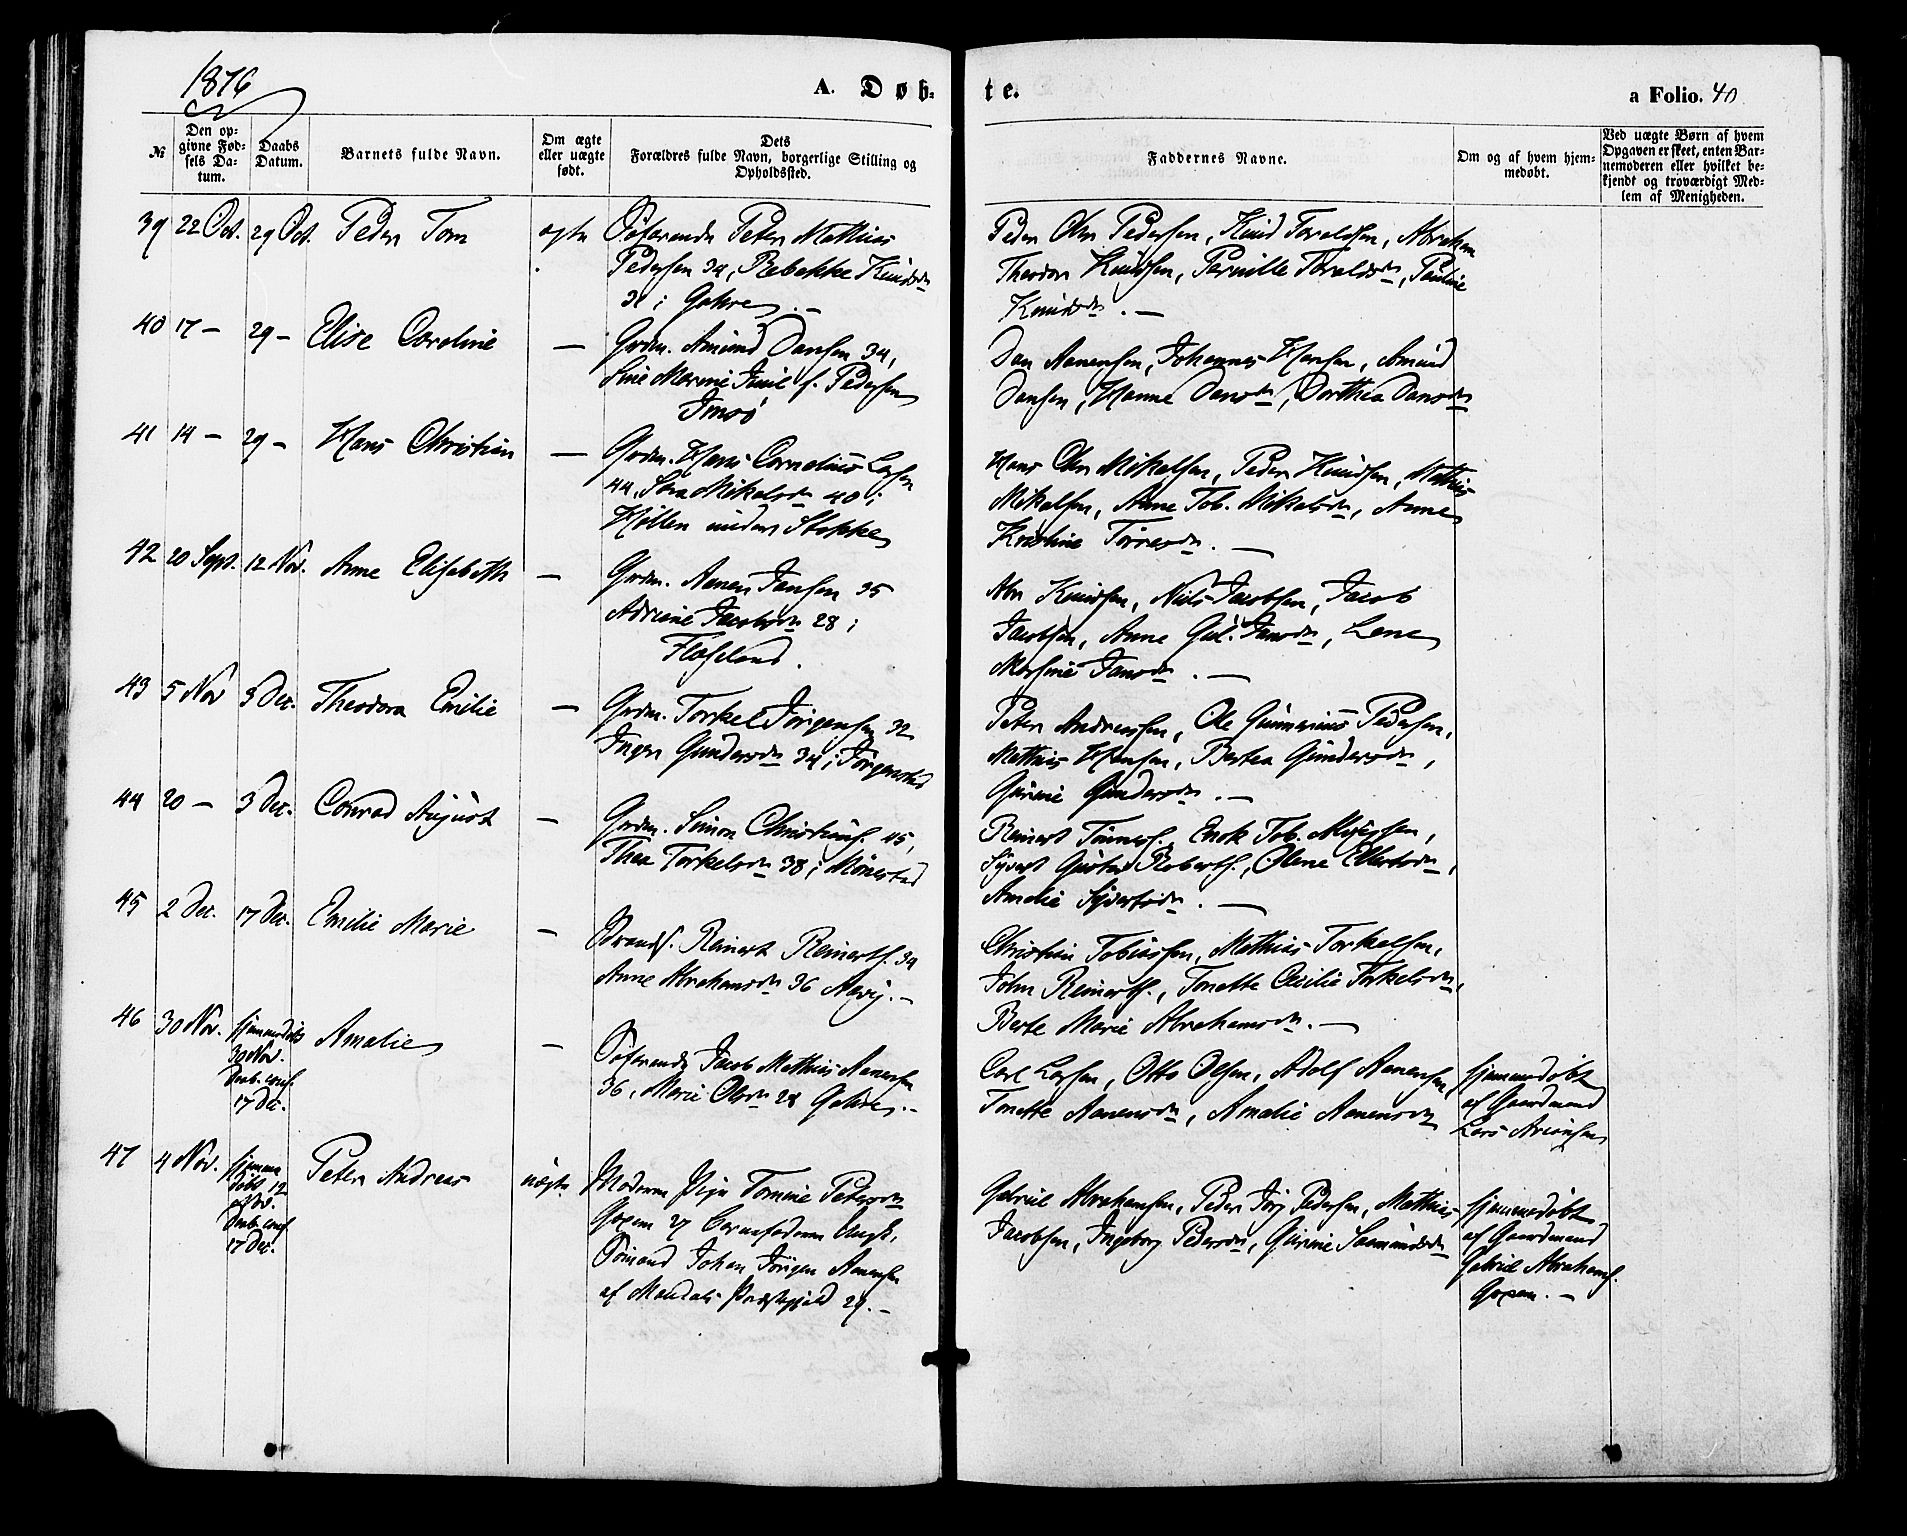 1876
A. Døb-
te.
a Folio. 40
№
Den op-
givne Fød-
sels Da-
tum.
Daabs
Datum.
Barnets fulde Navn.
Om ægte
eller uægte
født.
Dets
Forældres fulde Navn, borgerlige Stilling og
Opholdssted.
Faddernes Navne.
Om og af hvem hjem-
medøbt.
Ved uægte Børn af hvem
Opgaven er skeet, enten Bar-
nemoderen eller hvilket be-
kjendt og troværdigt Med-
lem af Menigheden.
39 22 Oct. 29 Oct. Peder Tom ægte Søfarende Peter Mathias
Pedersen 34, Rebekke Knudsdtr
31 i Gahre. —
Peder Chr Pedersen, Knud Toraldsen, Abraham
Theodor Knudsen, Pernille Toraldsdtr, Pauline
Knudsdtr. —
40 17 — 29 — Elise Caroline — Grdm. Amund Dansen 34,
Sine Marine Juul f. Pedersen
Imsø
Dan Aanensen, Johannes Hansen, Amund
Dansen, Hanne Dansdtr, Dorthea Dansdtr
41 14 — 29 — Hans Christian — Grdm. Hans Cornelius Larsen
44, Sara Mikelsdtr 40 i
Hollen under Stokke
Hans Chr Mikelsen, Peder Knudsen, Mathias
Mikelsen, Anne Tob. Mikelsdtr, Anne
Kristine Torresdtr. —
42 20 Sept. 12 Nov. Anne Elisabeth — Grdm. Aanen Jansen 35
Adriane Jacobsdtr 28 i
Fladseland.
Abr Knudsen, Niels Jacobsen, Jacob
Jacobsen, Anne Gul. Jansdtr, Lene
Marsine Jansdtr. —
43 5 Nov 3 Dec. Theodora Emilie — Grdm. Torkel Jørgensen 32
Inger Gundersdtr 34 i Jørgenstad
Peter Andreassen, Ole Gunnarius Pedersen,
Mathias Hansen, Bertea Gundersdtr,
Gurine Gundersdtr. —
44 20 — 3 Dec. Conrad August — Grdm. Simon Christians. 45,
Thea Torkelsdtr 38 i Mønestad
Reinert Tønnes., Enok Tob.
Syvert Gustav Roberts., Olene Ellertsdtr,
Amalie Syvertsdtr. —
45 2 Dec. 17 Dec. Emilie Marie — Strands. Reinert Reinerts. 34
Anne Abrahamsdtr 36 Aavig. —
Christian Tobiassen, Mathias Torkelsen,
John Reinerts., Tonette Cecilie Torkelsdtr,
Berte Marie Abrahamsdtr. —
46 30 Nov. hjemmedøbt
30 Nov.
Daab. conf.
17 Dec.
Amalie — Søfarende Jacob Mathias Aanensen
36, Marie Olsdtr 28 Gahre. —
Carl Larsen, Otto Olsen, Adolf Aanensen
Tonette Aanensdtr, Amalie Aanensdtr
hjemmedøbt
af Gaardmand
Lars
47 4 Nov. hjemme
døbt 12
Nov.
Daab. conf.
17 Dec.
Peter Andreas uægte Moderen Pige Tomine Petersdtr
Gaxem 27 Barnefaderen Ungk.
Sømand Johan Jørgen Aanensen
af Mandals Præstegjeld 29. —
Gabriel Abrahamsen, Peder Jørg Pedersen, Mathias
Jacobsen, Ingeborg Pedersdtr, Gurine Saamundsdtr
hjemmedøbt
af Gaardmand
Gabriel Abrahams.
Gaxem. —